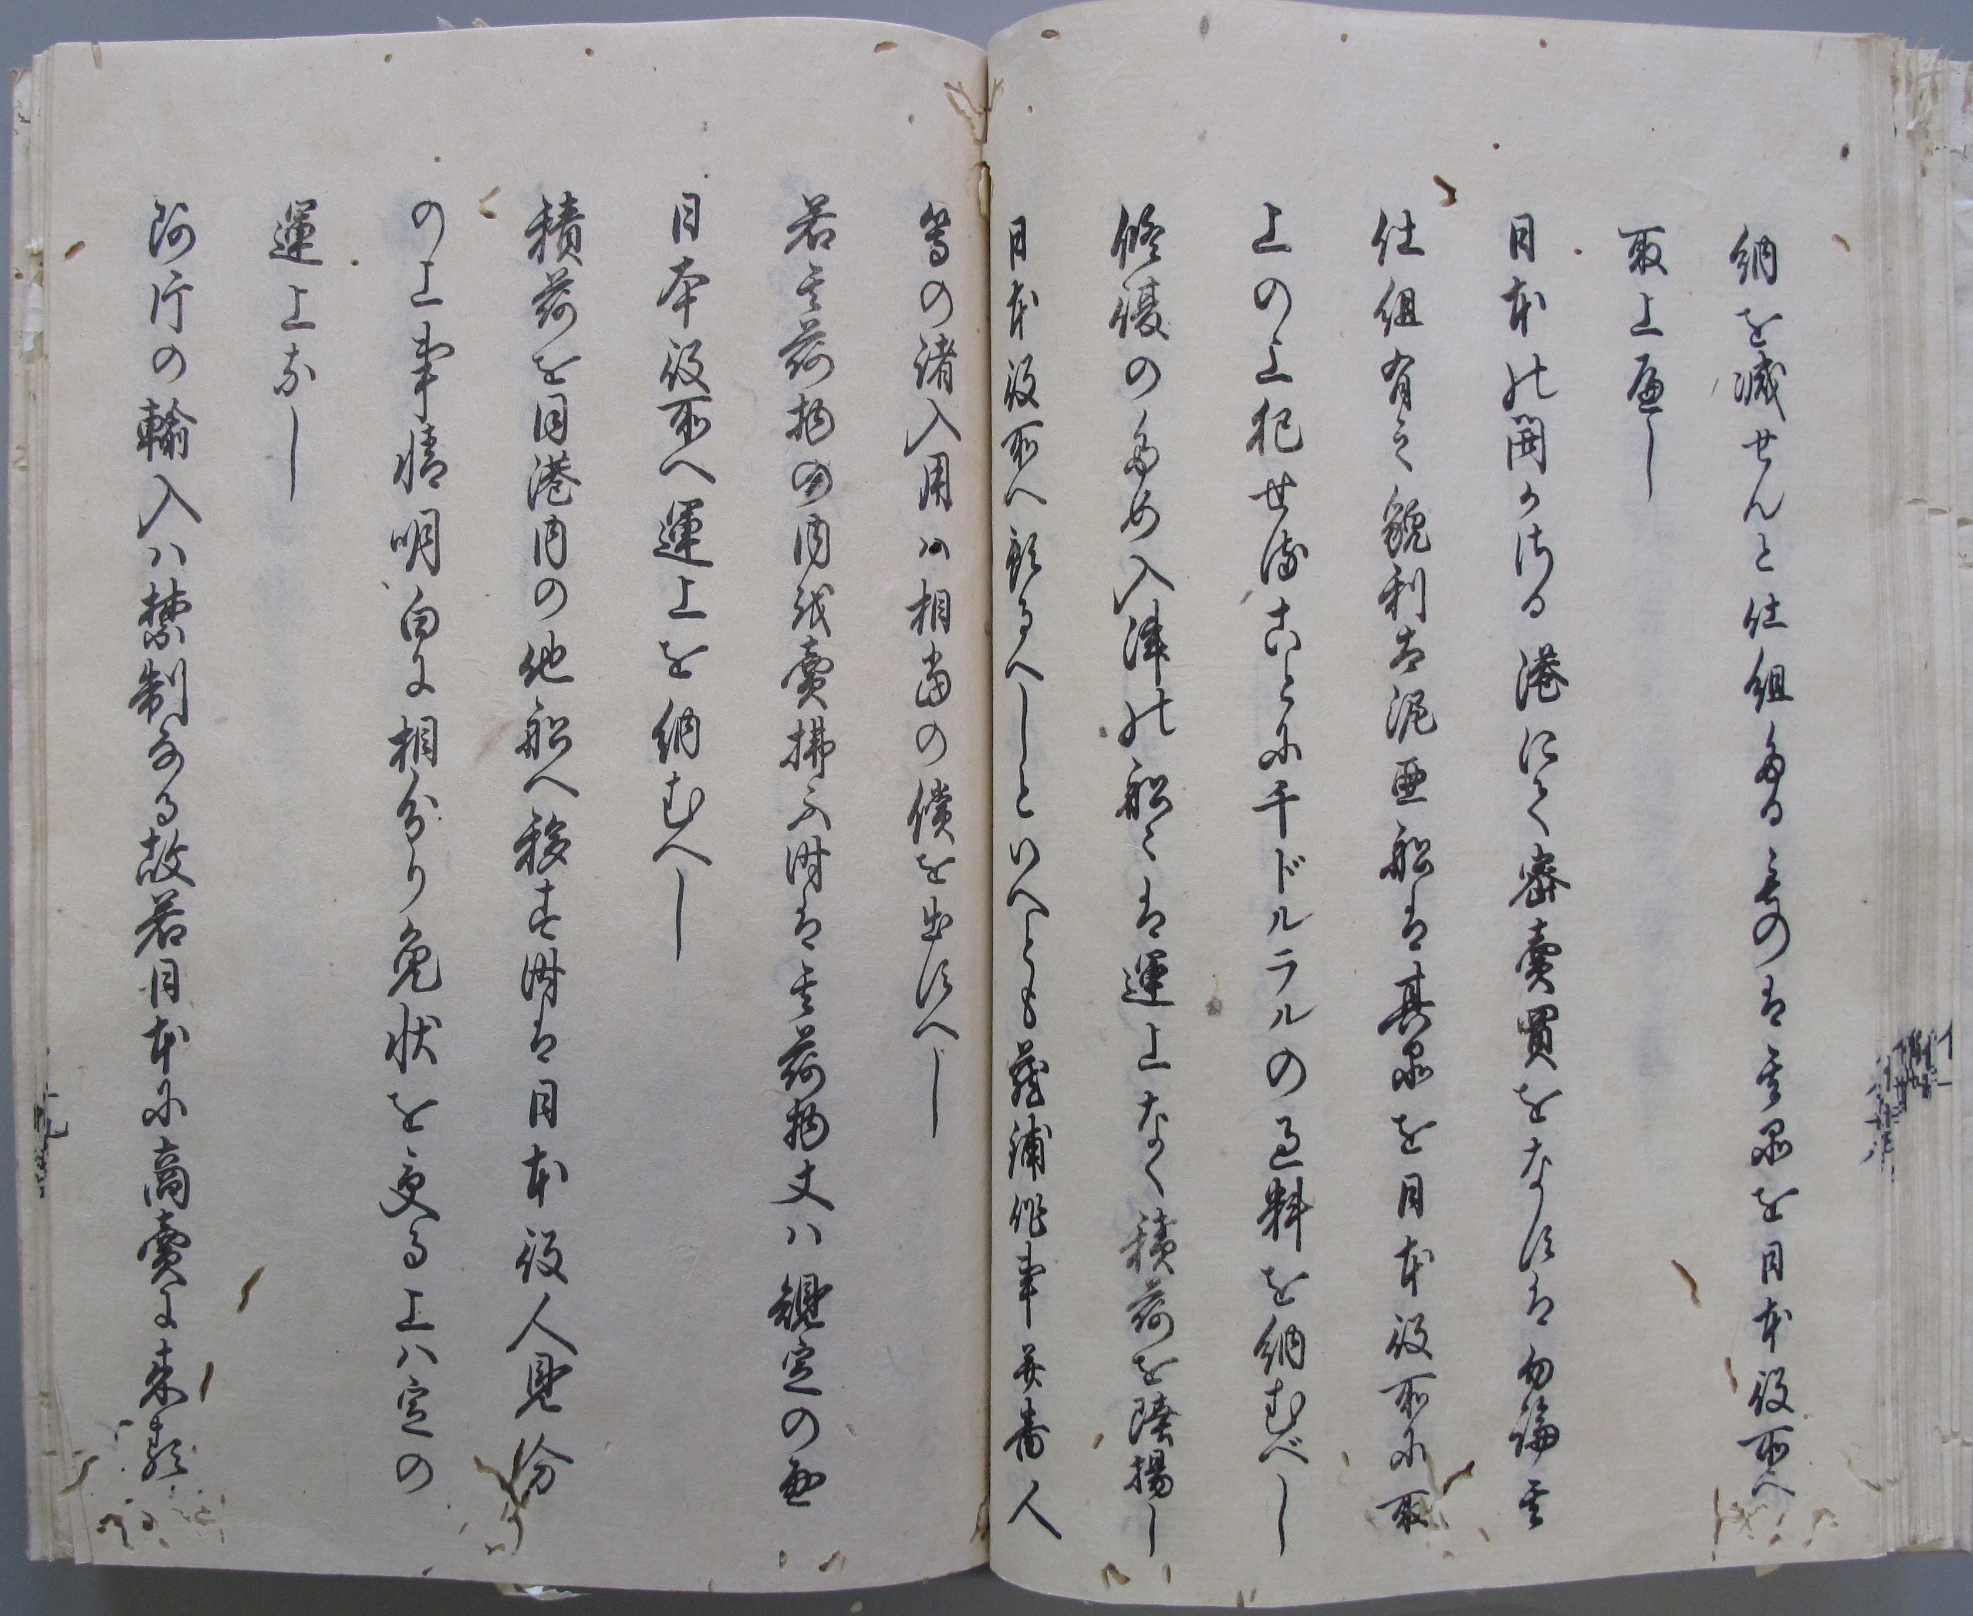 納を減せんと仕組たるものは其品を日本役所へ
取上へし
日本の開かさる港にて密賣買をなすは勿論其
仕組有之貌利太泥亜船は其品を日本役所に取
上の上犯せることに千ドルラルの過料を納むべし
修復のため入津の船々は運上なく積荷を陸揚し
日本役所へ預るへしといへとも蔵浦作事并番人
等の諸入用ハ相当の償を出すへし
若其荷物の内或賣拂ふ時は其荷物丈ハ規定の通
日本役所へ運上を納むへし
積荷を同港内の他船へ移す時は日本役人見分
の上事情明白に相分り免状を受る上ハ定の
運上なし
阿片の輸入ハ禁制なる故若日本に商賣に来れる